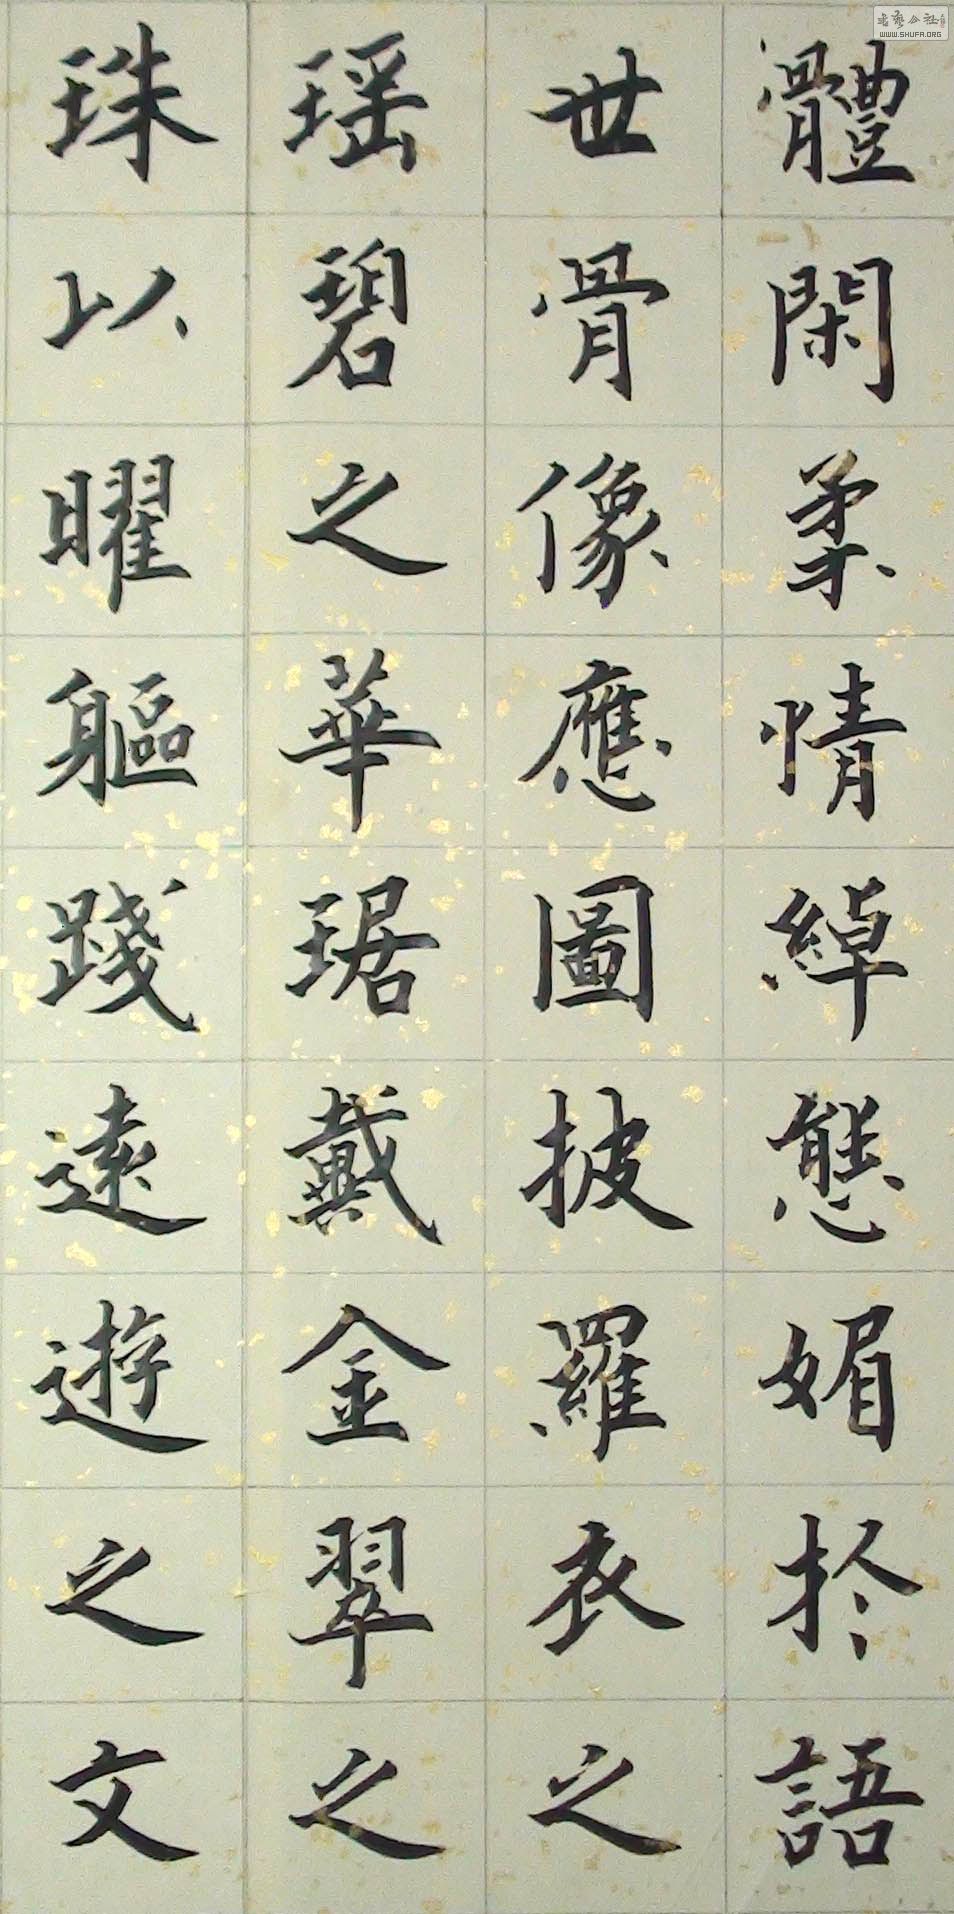 體閑柔情綽態媚於語
世骨像應圖披羅衣之
瑶碧之華琚戴金翠之
珠以曜軀踐遠遊之文
书艺公社
WWW.SHUFA.ORG